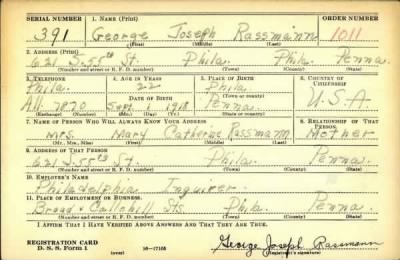 SERIAL NUMBER 1. NAME (Print) ORDER NUMBER
391 George Joseph Rassmann 1011
(First) (Middle) (Last)
2. ADDRESS (Print)
621 S. 55th St. Phila. Phila. Penna.
(Number and street or R. F. D. number) (Town) (County) (State)
3. TELEPHONE 4. AGE IN YEARS 5. PLACE OF BIRTH 6. COUNTRY OF CITIZENSHIP
Phila. 22 Phila.
(Town or county)
DATE OF BIRTH
All. 7870 Sept. 1 1918 Penna. U.S.A.
(Exchange) (Number) (Mo.) (Day) (Yr.) (State or country)
7. NAME OF PERSON WHO WILL ALWAYS KNOW YOUR ADDRESS 8. RELATIONSHIP OF THAT PERSON
Mrs. Mary Catherine Rassmann Mother
(Mr., Mrs., Miss) (First) (Middle) (Last)
9. ADDRESS OF THAT PERSON
621 S. 55th St. Phila. Penna.
(Number and street or R. F. D. number) (Town) (County) (State)
10. EMPLOYER'S NAME
Philadelphia Inquirer.
11. PLACE OF EMPLOYMENT OR BUSINESS
Broad & Callohill Sts. Phila. Penna.
(Number and street or R. F. D. number) (Town) (County) (State)
I AFFIRM THAT I HAVE VERIFIED ABOVE ANSWERS AND THAT THEY ARE TRUE.
REGISTRATION CARD
D. S. S. Form 1 (over) 16—17105 George Joseph Rassmann
(Registrant's signature)